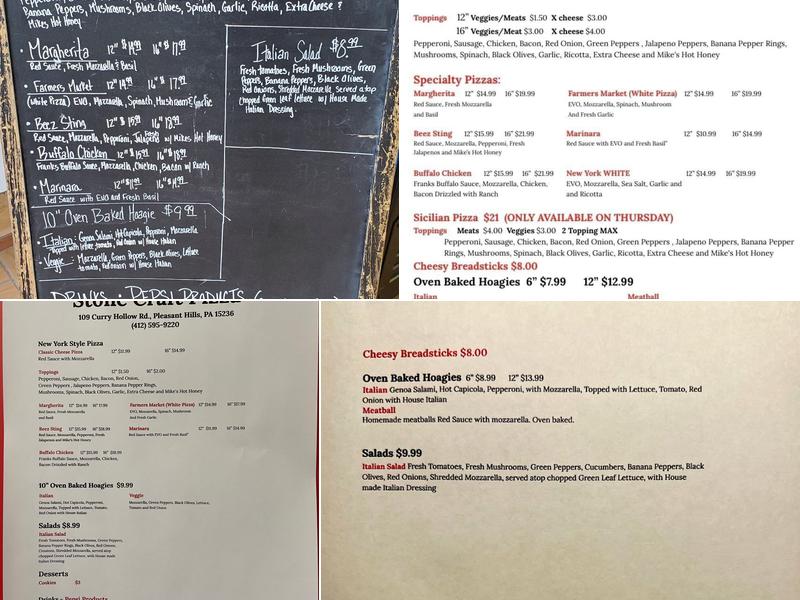 Banana Peppers, Mushrooms, Black Olives, Spinach, Garlic, Ricotta, Extra Cheese &
Mikes Hot Honey
• Margherita 12" $14.99 16" 17.99
Red Sauce, Fresh Mozzarella & Basil
• Farmers Market 12" 14.99 16" 17.99
(White Pizza) EVO, Mozzarella, Spinach, Mushrooms & Garlic
• Beez Sting 12" $15.99 16" 18.99
Red Sauce, Mozzarella, Pepperoni, Fresh Jalapeno w/ Mikes Hot Honey
• Buffalo Chicken 12" $15.99 16" $18.99
Franks Buffalo Sauce, Mozzarella, Chicken, Bacon w/ Ranch
• Marinara 12" $11.99 16" $14.99
Red Sauce with EVO and Fresh Basil
10" Oven Baked Hoagie $9.99
• Italian: Genoa Salami, Hot Capicola, Pepperoni, Mozzarella
Topped with lettuce, tomato, Red Onion w/ House Italian
• Veggie: Mozzarella, Green Peppers, Black Olives, Lettuce
tomato, red onion w/ House Italian
DRINKS • PEPSI PRODUCTS
Italian Salad $8.99
Fresh tomatoes, Fresh Mushrooms, Green
Peppers, Banana Peppers, Black Olives,
Red Onions, Shredded Mozzarella, served atop
chopped Green Leaf lettuce w/ House Made
Italian Dressing
Toppings 12" Veggies/Meats $1.50 X cheese $3.00
16" Veggies/Meats $3.00 X cheese $4.00
Pepperoni, Sausage, Chicken, Bacon, Red Onion, Green Peppers , Jalapeno Peppers, Banana Pepper Rings,
Mushrooms, Spinach, Black Olives, Garlic, Ricotta, Extra Cheese and Mike's Hot Honey
Specialty Pizzas:
Margherita 12" $14.99 16" $19.99
Red Sauce, Fresh Mozzarella
and Basil
Farmers Market (White Pizza) 12" $14.99 16" $19.99
EVO, Mozzarella, Spinach, Mushroom
And Fresh Garlic
Beez Sting 12" $15.99 16" $21.99
Red Sauce, Mozzarella, Pepperoni, Fresh
Jalapenos and Mike's Hot Honey
Marinara 12" $10.99 16" $14.99
Red Sauce with EVO and Fresh Basil"
Buffalo Chicken 12" $15.99 16" $21.99
Franks Buffalo Sauce, Mozzarella, Chicken,
Bacon Drizzled with Ranch
New York WHITE 12" $14.99 16" $19.99
EVO, Mozzarella, Sea Salt, Garlic and
and Ricotta
Sicilian Pizza $21 (ONLY AVAILABLE ON THURSDAY)
Toppings Meats $4.00 Veggies $3.00 2 Topping MAX
Pepperoni, Sausage, Chicken, Bacon, Red Onion, Green Peppers , Jalapeno Peppers, Banana Pepper
Rings, Mushrooms, Spinach, Black Olives, Garlic, Ricotta, Extra Cheese and Mike's Hot Honey
Cheesy Breadsticks $8.00
Oven Baked Hoagies 6" $7.99 12" $12.99
Italian Meatball
Stone Craft Pizza
109 Curry Hollow Rd., Pleasant Hills, PA 15236
(412) 595-9220
New York Style Pizza
Classic Cheese Pizza 12" $11.99 16" $14.99
Red Sauce with Mozzarella
Toppings 12" $1.50 16" $2.00
Pepperoni, Sausage, Chicken, Bacon, Red Onion,
Green Peppers , Jalapeno Peppers, Banana Pepper Rings,
Mushrooms, Spinach, Black Olives, Garlic, Extra Cheese and Mike's Hot Honey
Margherita 12" $14.99 16" 17.99
Red Sauce, Fresh Mozzarella
and Basil
Farmers Market (White Pizza) 12" $14.99 16" $17.99
EVO, Mozzarella, Spinach, Mushroom
And Fresh Garlic
Beez Sting 12" $15.99 16" $18.99
Red Sauce, Mozzarella, Pepperoni, Fresh
Jalapenos and Mike's Hot Honey
Marinara 12" $11.99 16" $14.99
Red Sauce with EVO and Fresh Basil"
Buffalo Chicken 12" $15.99 16" $18.99
Franks Buffalo Sauce, Mozzarella, Chicken,
Bacon Drizzled with Ranch
10" Oven Baked Hoagies $9.99
Italian
Genoa Salami, Hot Capicola, Pepperoni,
Mozzarella, Topped with Lettuce, Tomato,
Red Onion with House Italian
Veggie
Mozzarella, Green Peppers, Black Olives, Lettuce,
Tomato and Red Onion
Salads $8.99
Italian Salad
Fresh Tomatoes, Fresh Mushrooms, Green Peppers,
Banana Pepper Rings, Black Olives, Red Onions,
Croutons, Shredded Mozzarella, served atop
chopped Green Leaf Lettuce, with House made
Italian Dressing
Desserts
Cookies $3
Drinks - Pepsi Products
Cheesy Breadsticks $8.00
Oven Baked Hoagies 6" $8.99 12" $13.99
Italian Genoa Salami, Hot Capicola, Pepperoni, with Mozzarella, Topped with Lettuce, Tomato, Red
Onion with House Italian
Meatball
Homemade meatballs Red Sauce with mozzarella. Oven baked.
Salads $9.99
Italian Salad Fresh Tomatoes, Fresh Mushrooms, Green Peppers, Cucumbers, Banana Peppers, Black
Olives, Red Onions, Shredded Mozzarella, served atop chopped Green Leaf Lettuce, with House
made Italian Dressing